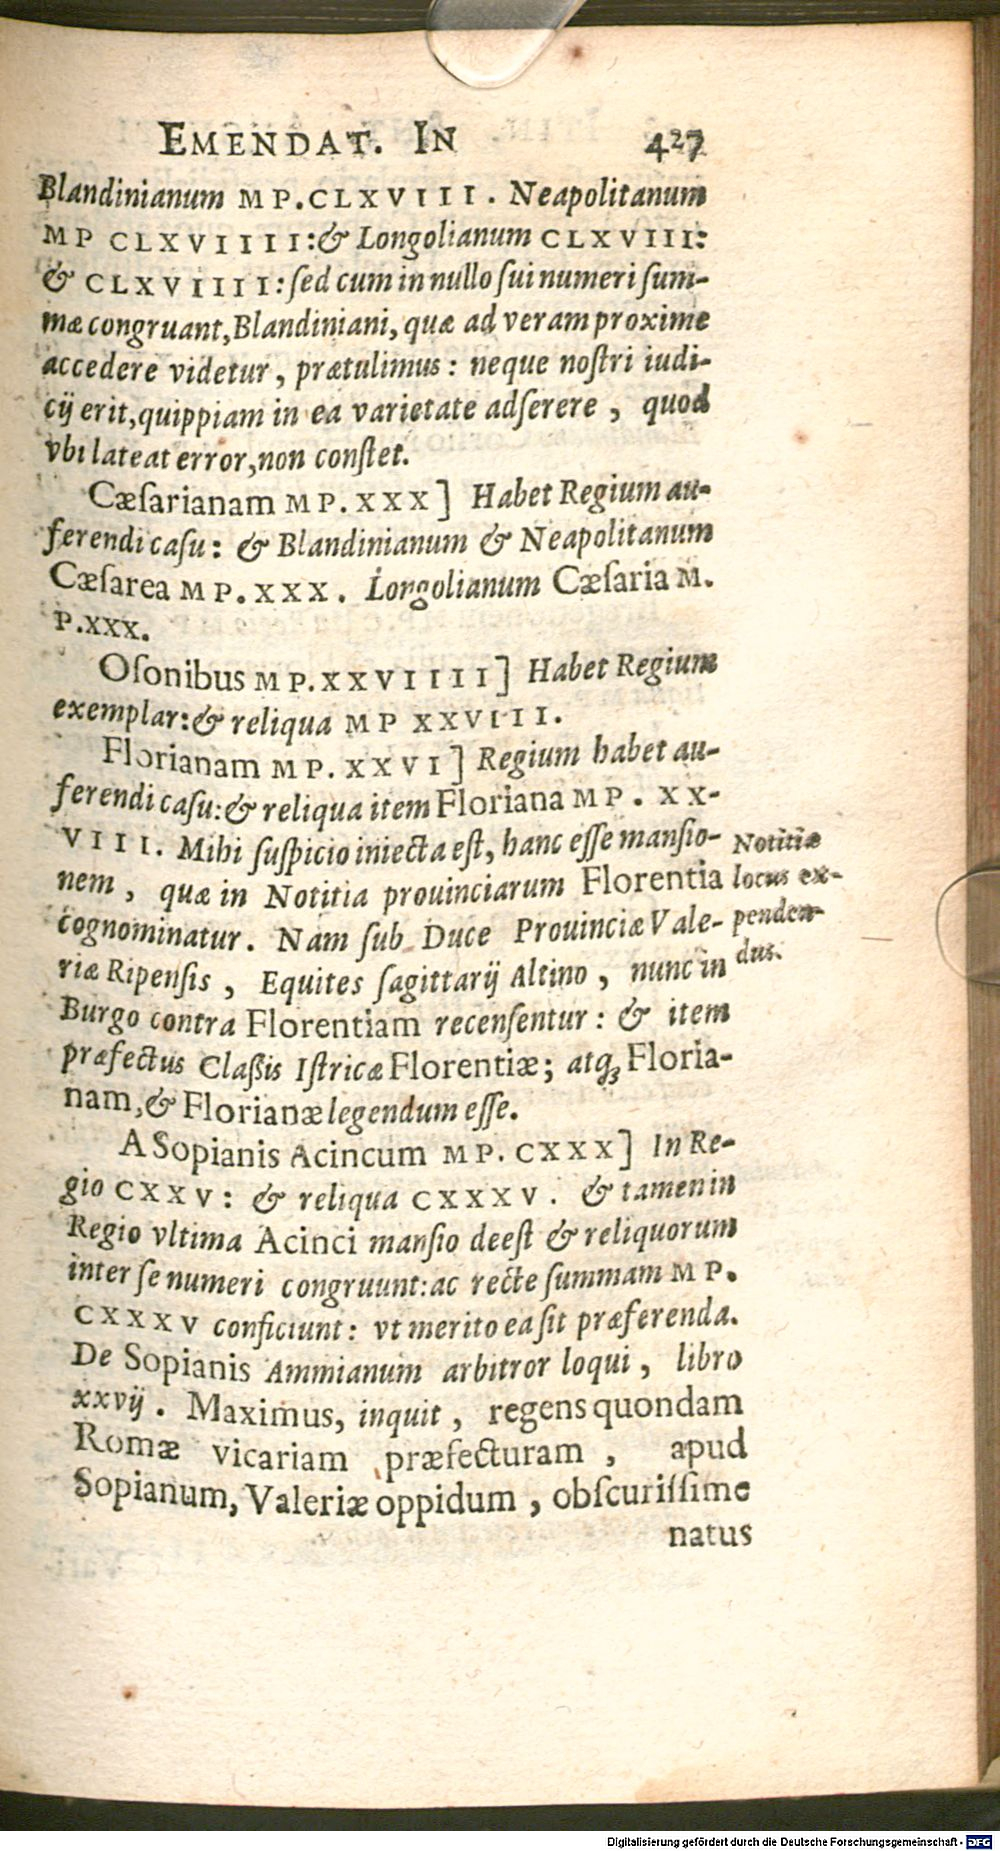 EMENDAT. IN 427
Blandinianum MP.CLXVIII. Neapolitanum
MP CLXVIIII:& Longolianum CLXVIII:
& CLXVIIII: ſed cum in nullo ſui numeri ſum-
mæ congruant, Blandiniani, quæ ad veram proxime
accedere videtur, prætulimus: neque noſtri iudi-
cij erit, quippiam in ea varietate adſerere, quod
vbi lateat error, non conſtet.
Cæſarianam MP.XXX] Habet Regium au-
ferendi caſu: & Blandinianum & Neapolitanum
Cæſarea MP.XXX. Longolianum Cæſaria M.
P.XXX.
Oſonibus MP.XXVIIII] Habet Regium
exemplar: & reliqua MP XXVIII.
Florianam MP. XXVI] Regium habet au-
ferendi caſu: & reliqua item Floriana MP. XX-
VIII. Mihi ſuſpicio iniecta eſt, hanc eſſe manſio-
nem, quæ in Notitia prouinciarum Florentia
cognominatur. Nam ſub Duce Prouinciæ Vale-
riæ Ripenſis, Equites ſagittarij Altino, nunc in
Burgo contra Florentiam recenſentur: & item
præfectus Claſsis Iſtricæ Florentiæ; atq; Floria-
nam, & Florianæ legendum eſſe.
Notitiæ
locus ex-
penden-
dus.
A Sopianis Acincum MP. CXXX] In Re-
gio CXXV: & reliqua CXXXV. & tamen in
Regio vltima Acinci manſio deeſt & reliquorum
inter ſe numeri congruunt: ac recte ſummam MP.
CXXXV conficiunt: vt merito ea ſit præferenda.
De Sopianis Ammianum arbitror loqui, libro
xxvij. Maximus, inquit, regens quondam
Romæ vicariam præfecturam, apud
Sopianum, Valeriæ oppidum, obſcuriſſime
natus
Digitalisierung gefördert durch die Deutsche Forschungsgemeinschaft - DFG